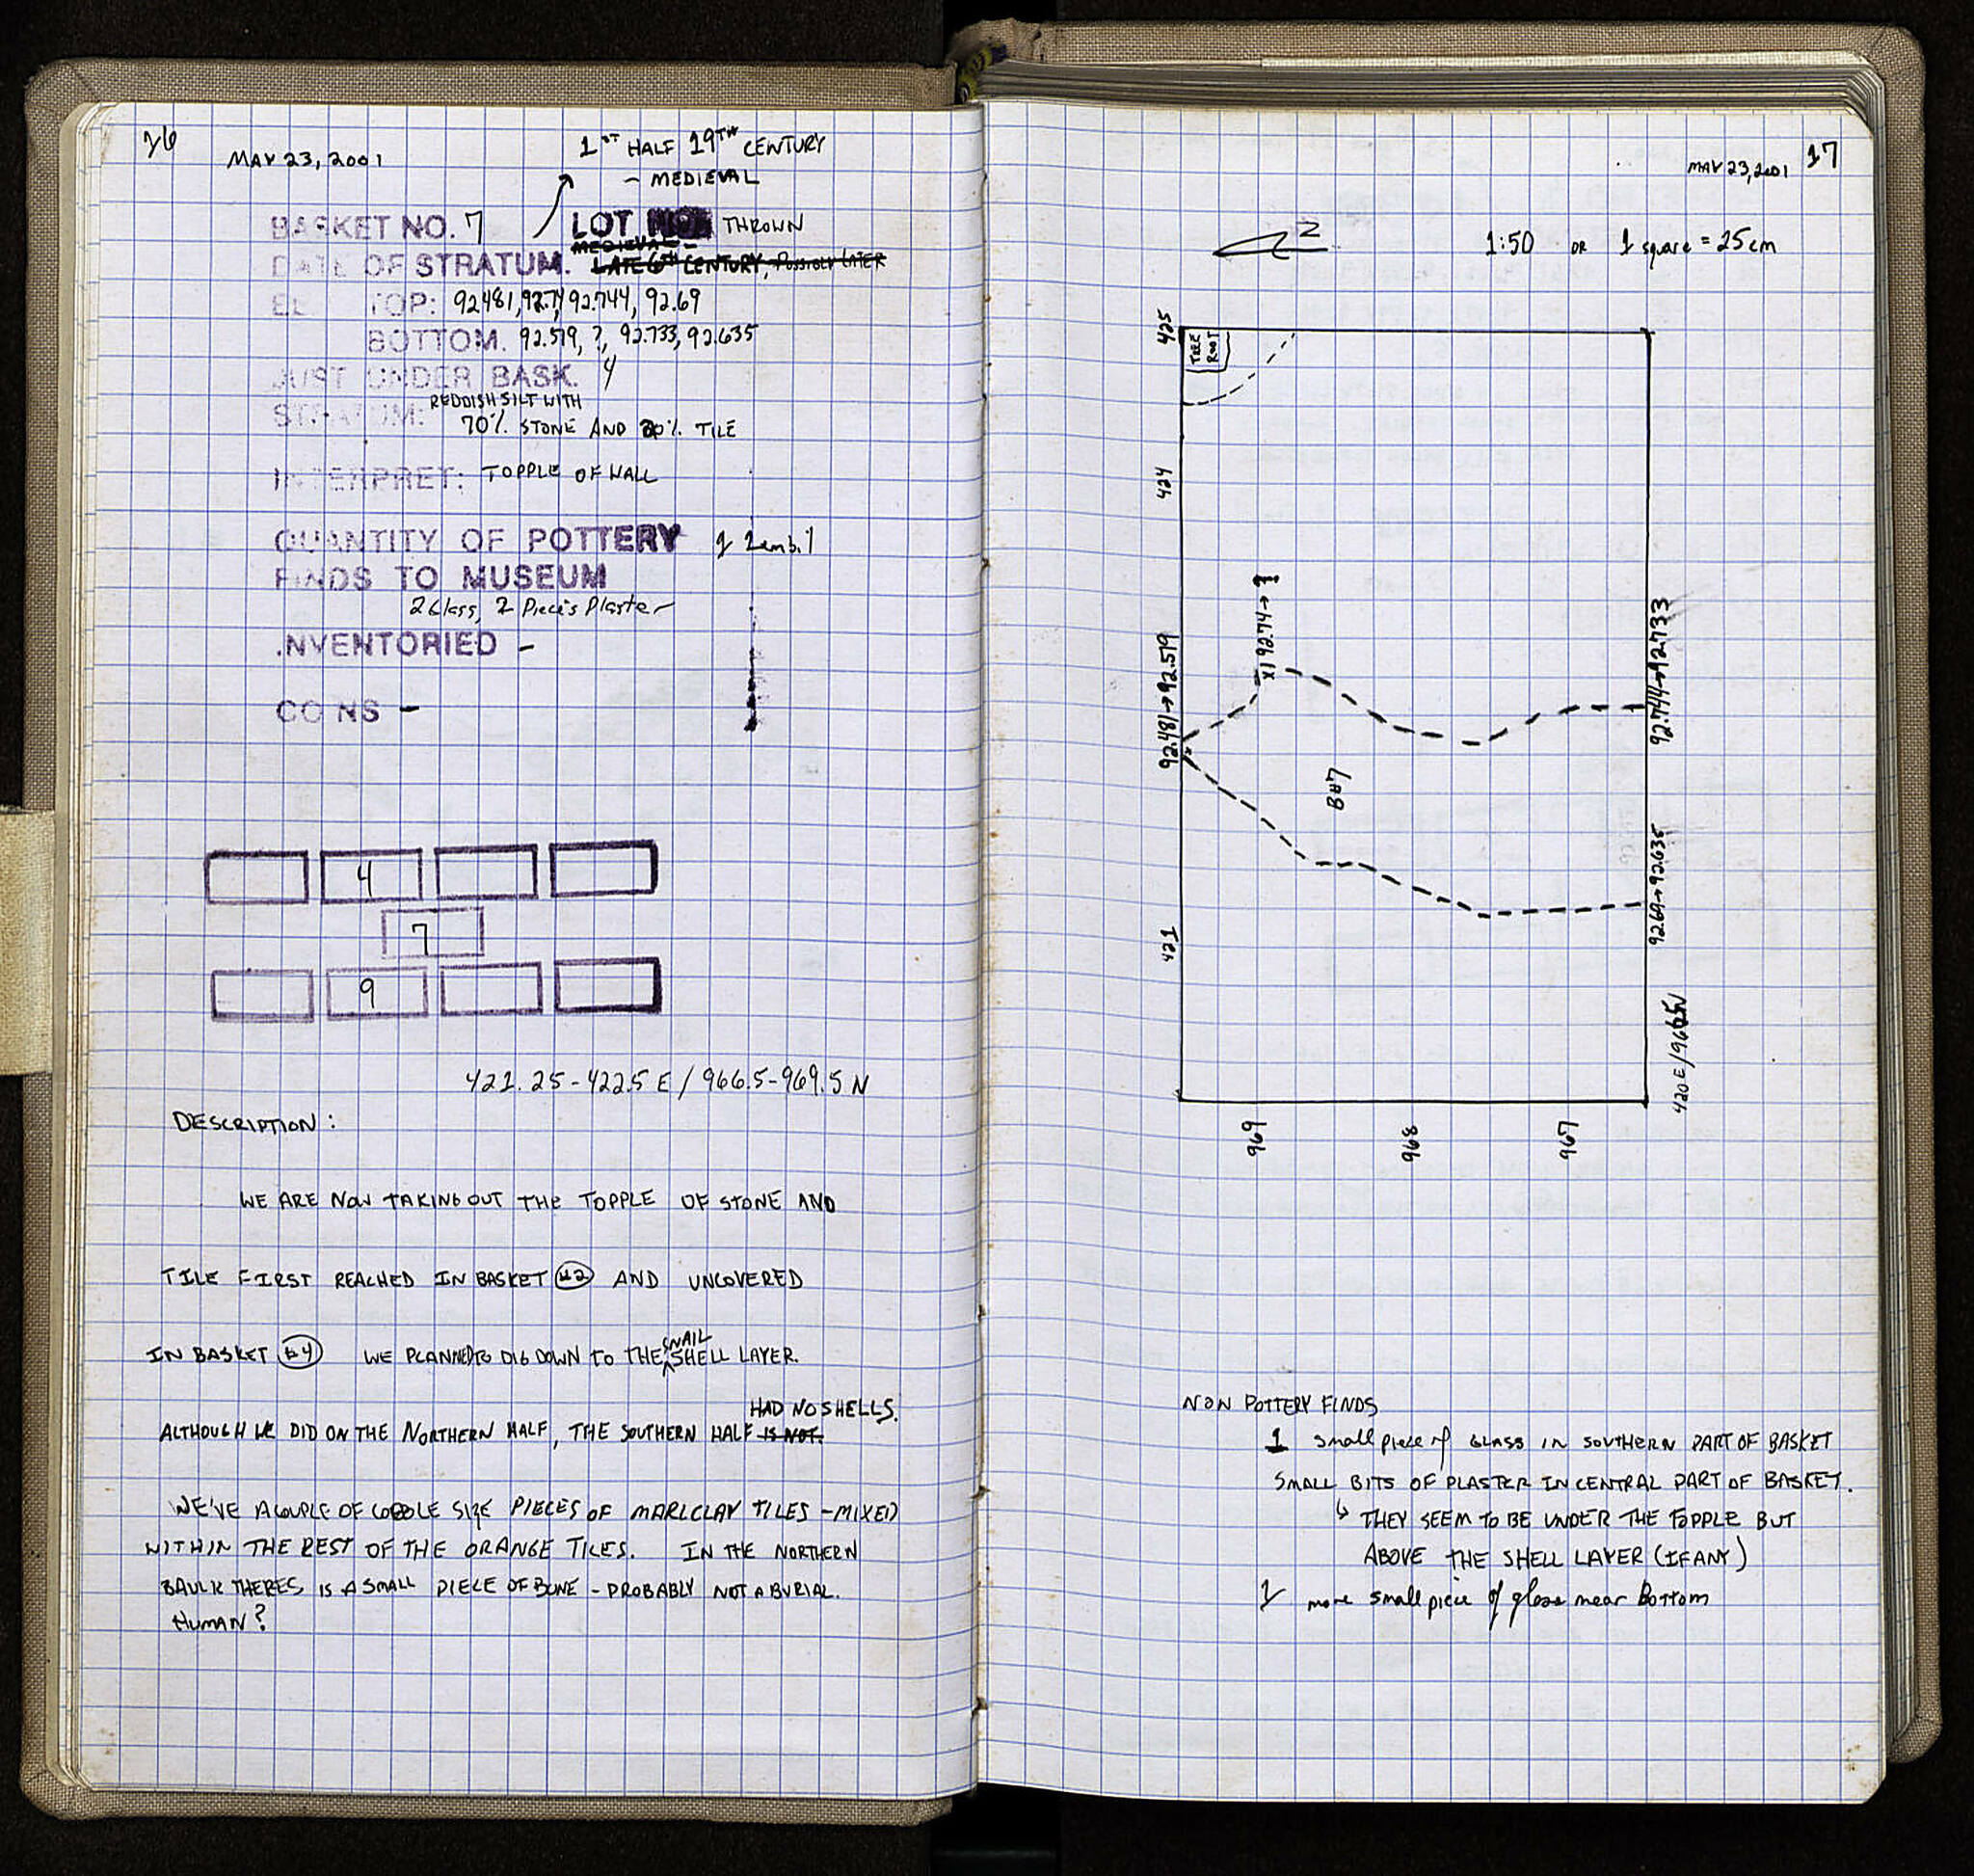 26
MAY 23, 2001
1ST HALF 19TH CENTURY
- MEDIEVAL
BASKET NO. 7
LOT NO. THROWN
MEDIEVAL -
DATE OF STRATUM. LATE 6TH CENTURY, POSSIBLY LATER
EL TOP: 92.481, 92.74, 92.744, 92.69
BOTTOM. 92.519, ?, 92.733, 92.635
JUST UNDER BASK. 4
REDDISH SILT WITH
STRATUM: 70% STONE AND 30% TILE
INTERPRET: TOPPLE OF WALL
QUANTITY OF POTTERY 1 Zembil
FINDS TO MUSEUM
2 Glass, 2 Pieces Plaster
INVENTORIED -
COINS -
4
7
9
421.25-422.5 E / 966.5-969.5 N
DESCRIPTION:
WE ARE NOW TAKING OUT THE TOPPLE OF STONE AND
TILE FIRST REACHED IN BASKET #2 AND UNCOVERED
IN BASKET #4 WE PLANNED TO DIG DOWN TO THE SNAIL SHELL LAYER.
HAD NO SHELLS.
ALTHOUGH WE DID ON THE NORTHERN HALF, THE SOUTHERN HALF IS NOT.
WE'VE A COUPLE OF COBBLE SIZE PIECES OF MARLCLAY TILES - MIXED
WITHIN THE REST OF THE ORANGE TILES. IN THE NORTHERN
BAULK THERES IS A SMALL PIECE OF BONE - PROBABLY NOT A BURIAL.
HUMAN?
MAY 23, 2001 17
N
1:50 OR 1 square = 25cm
425
TREE
ROOT
424
x1 92.74→?
92.481→92.519
92.744→92.733
B#7
92.69→92.635
421
420E/966.5N
969
968
967
NON POTTERY FINDS
1 small piece of GLASS IN SOUTHERN PART OF BASKET
SMALL BITS OF PLASTER IN CENTRAL PART OF BASKET.
↳ THEY SEEM TO BE UNDER THE TOPPLE BUT
ABOVE THE SHELL LAYER (IF ANY)
1 more small piece of glass near Bottom